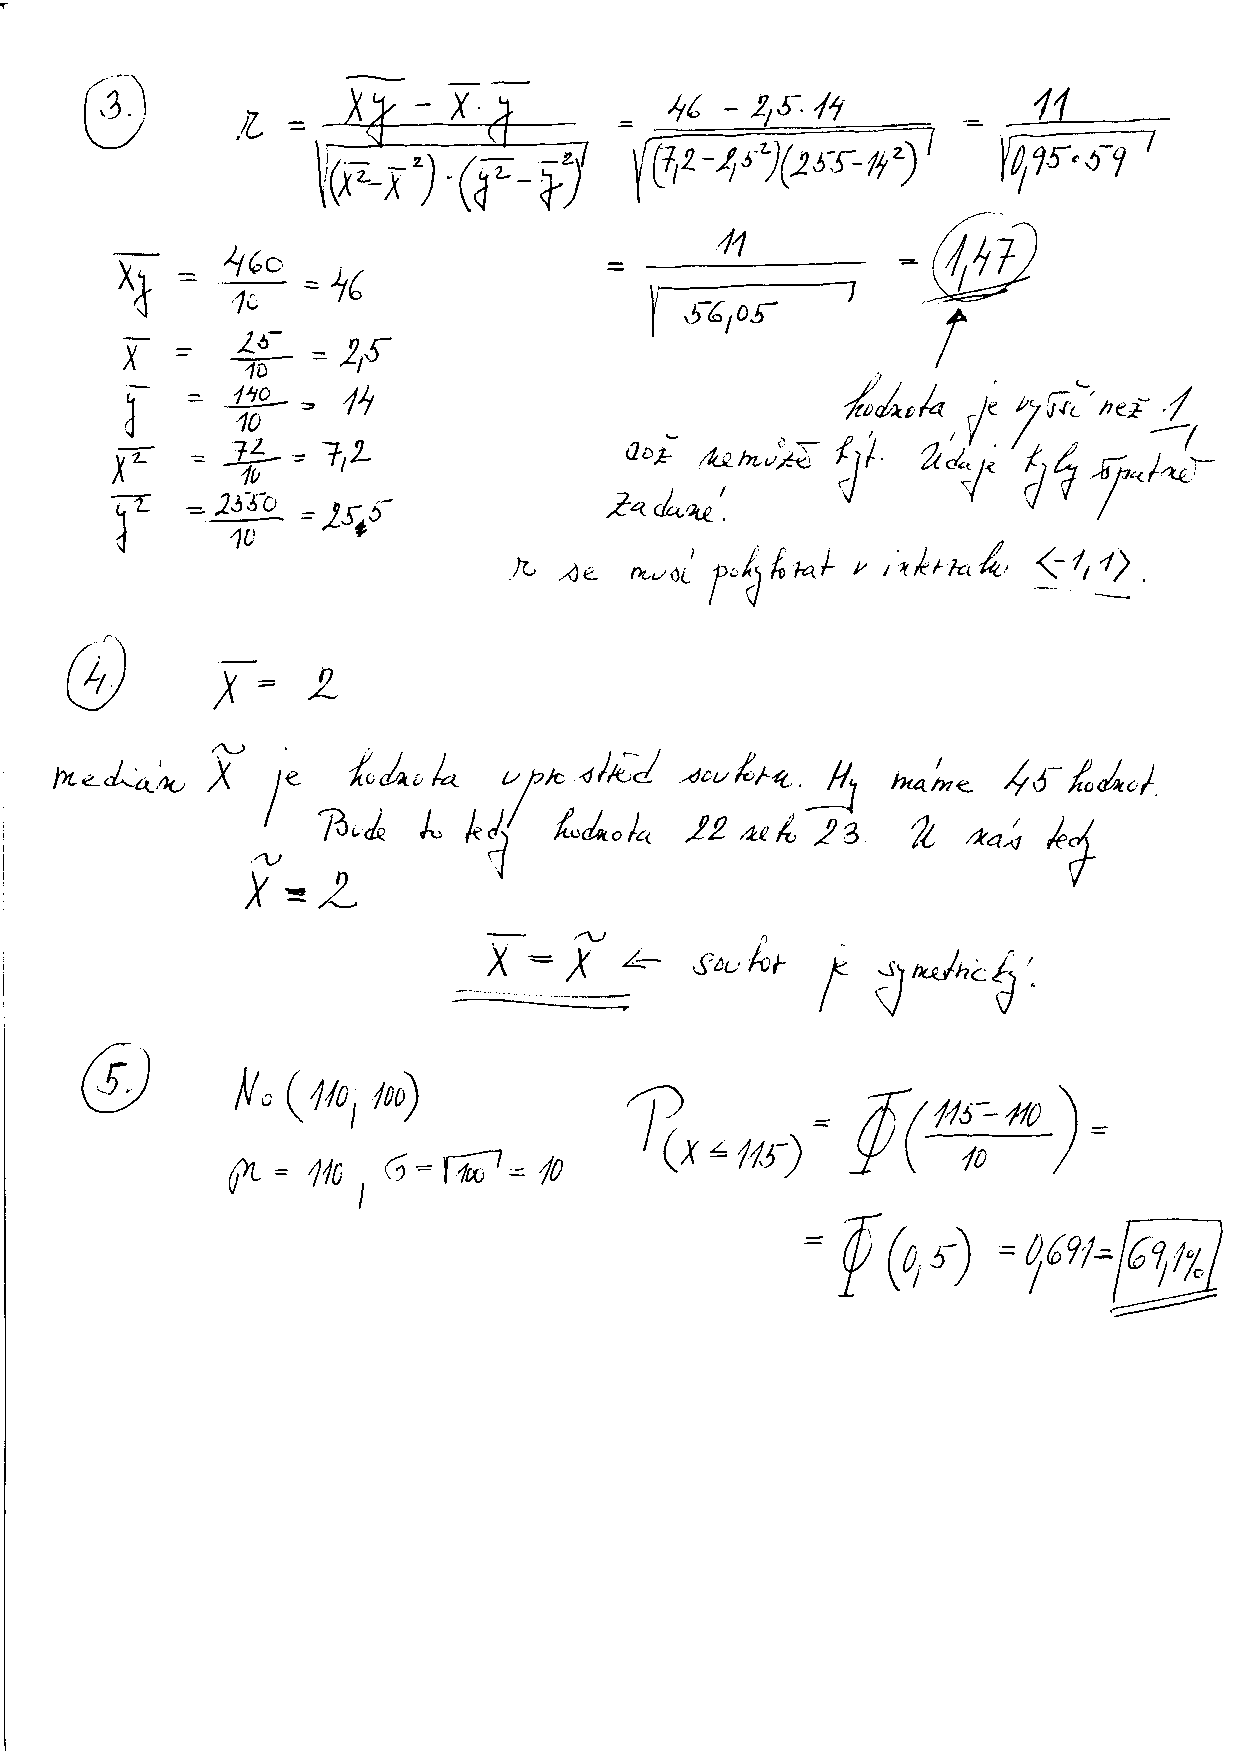 3. r = (x̅y̅ − x̅ · y̅) / √((x̅²̅ − x̅²) · (y̅²̅ − y̅²)) = (46 − 2,5 · 14) / √((7,2 − 2,5²)(255 − 14²)) = 11 / √(0,95 · 59)
= 11 / √56,05 = 1,47
x̅y̅ = 460/10 = 46
x̅ = 25/10 = 2,5
y̅ = 140/10 = 14
x̅²̅ = 72/10 = 7,2
y̅²̅ = 2550/10 = 25,5
hodnota je vyšší než 1,
což nemůže být. Údaje byly špatně
zadané.
r se musí pohybovat v intervalu <-1,1>.
4. x̅ = 2
medián x̃ je hodnota uprostřed souboru. My máme 45 hodnot.
Bude to tedy hodnota 22 nebo 23. U nás tedy
x̃ = 2
x̅ = x̃ ← soubor je symetrický.
5. No (110, 100)
μ = 110, σ = √100 = 10
P(x ≤ 115) = Φ((115 − 110)/10) =
= Φ(0,5) = 0,691 = 69,1%